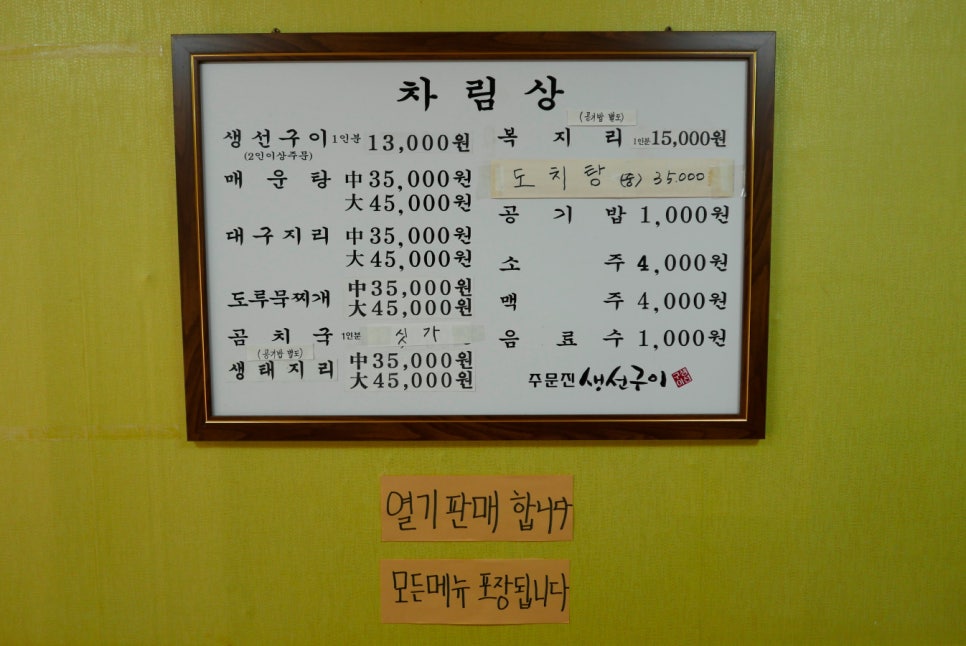 차림상
생선구이 1인분 13,000원
(2인이상주문)
매운탕 中 35,000원
大 45,000원
대구지리 中 35,000원
大 45,000원
도루묵찌개 中 35,000원
大 45,000원
곰치국 1인분 싯가
(공기밥 별도)
생태지리 中 35,000원
大 45,000원
(공기밥 별도)
복지리 1인분 15,000원
도치탕 (중) 35.000
공기밥 1,000원
소주 4,000원
맥주 4,000원
음료수 1,000원
주문진 생선구이
열기 판매 합니다
모든메뉴 포장됩니다